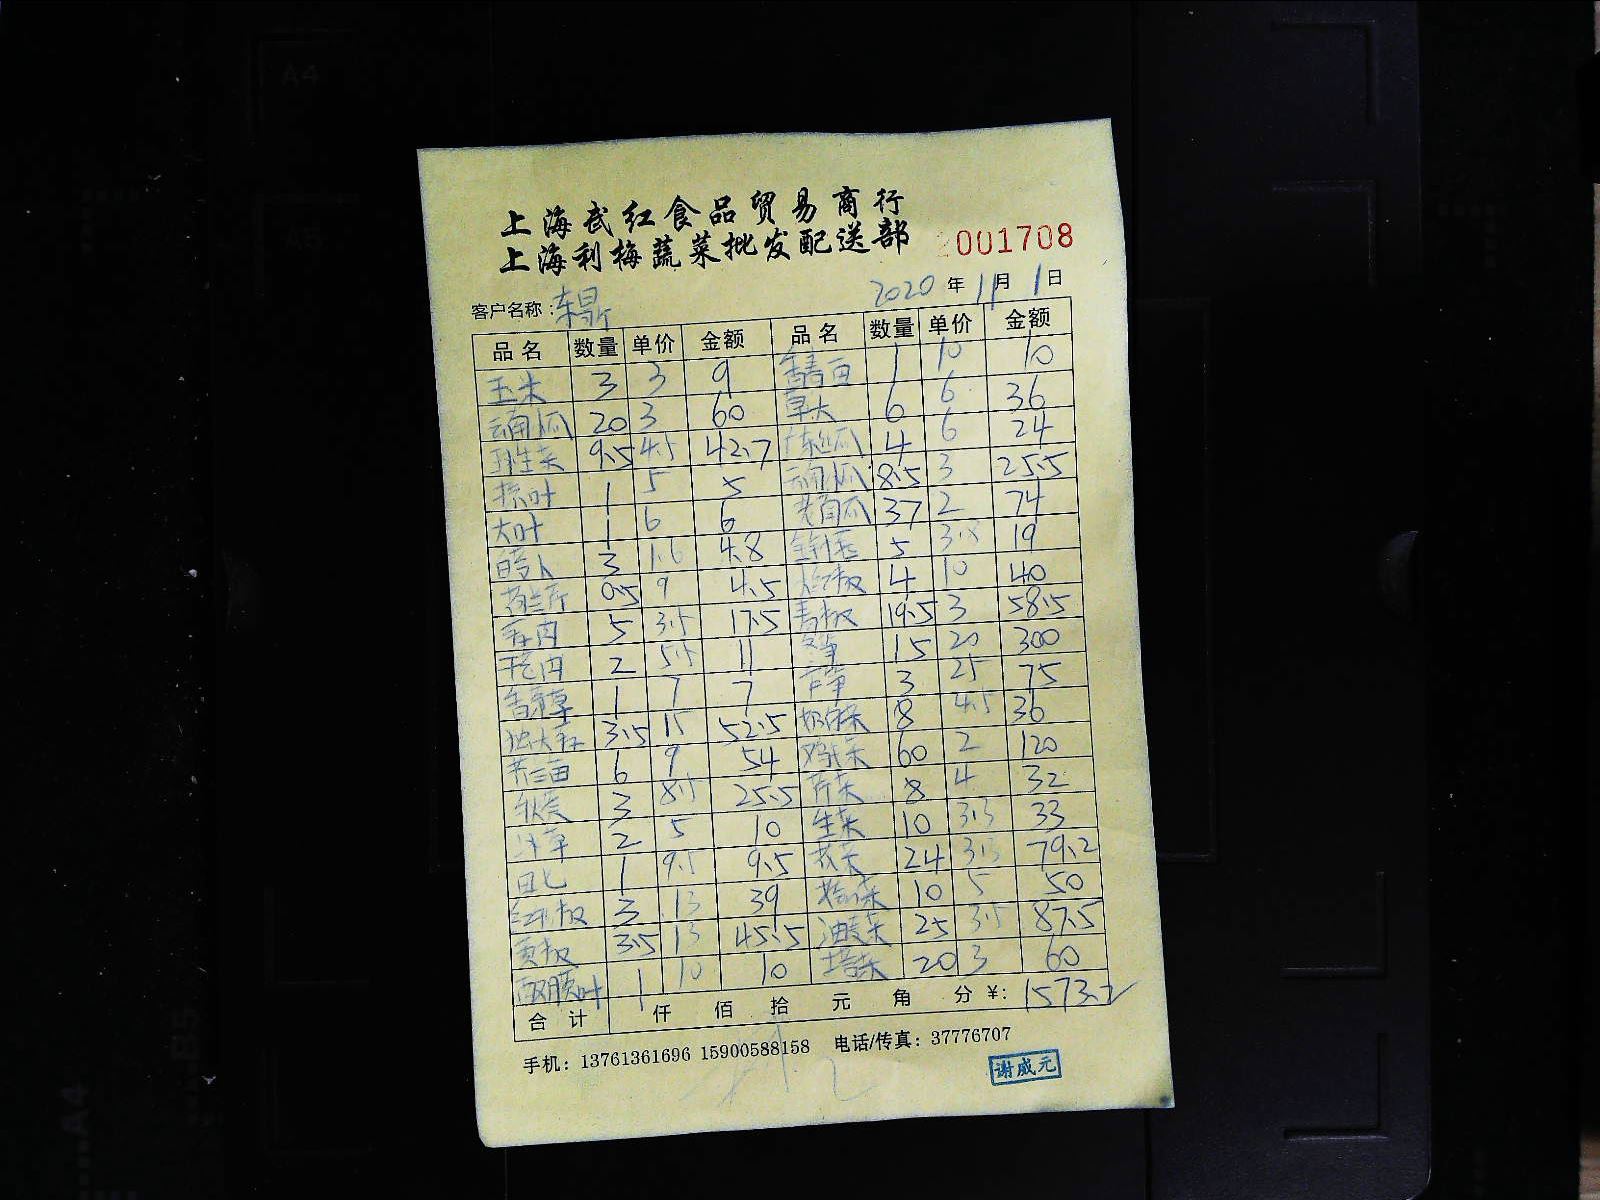 上海武红食品贸易商行
上海利梅蔬菜批发配送部
2001708
客户名称： 2020年11月1日
品名 数量 单价 金额 品名 数量 单价 金额
玉米 3 3 9 1 10 10
云南小瓜 20 3 60 草头 6 6 36
9.5 4.5 42.7 4 6 24
1 5 5 云南小瓜 8.5 3 25.5
大叶 1 6 6 老南瓜 37 2 74
3 1.6 4.8 金针菇 5 3.8 19
荷兰芹 0.5 9 4.5 4 10 40
5 3.5 17.5 青椒 19.5 3 58.5
2 5.5 11 冬笋 15 20 300
香茅草 1 7 7 3 25 75
独大蒜 3.5 15 52.5 奶白菜 8 4.5 36
6 9 54 鸡毛菜 60 2 120
秋葵 3 8.5 25.5 芹菜 8 4 32
2 5 10 生菜 10 3.3 33
1 9.5 9.5 24 3.3 79.2
3 13 39 10 5 50
黄椒 3.5 13 45.5 油麦菜 25 3.5 87.5
1 10 10 塔菜 20 3 60
合计 仟 佰 拾 元 角 分 ¥: 1573.2
手机：13761361696 15900588158 电话/传真：37776707
谢威元